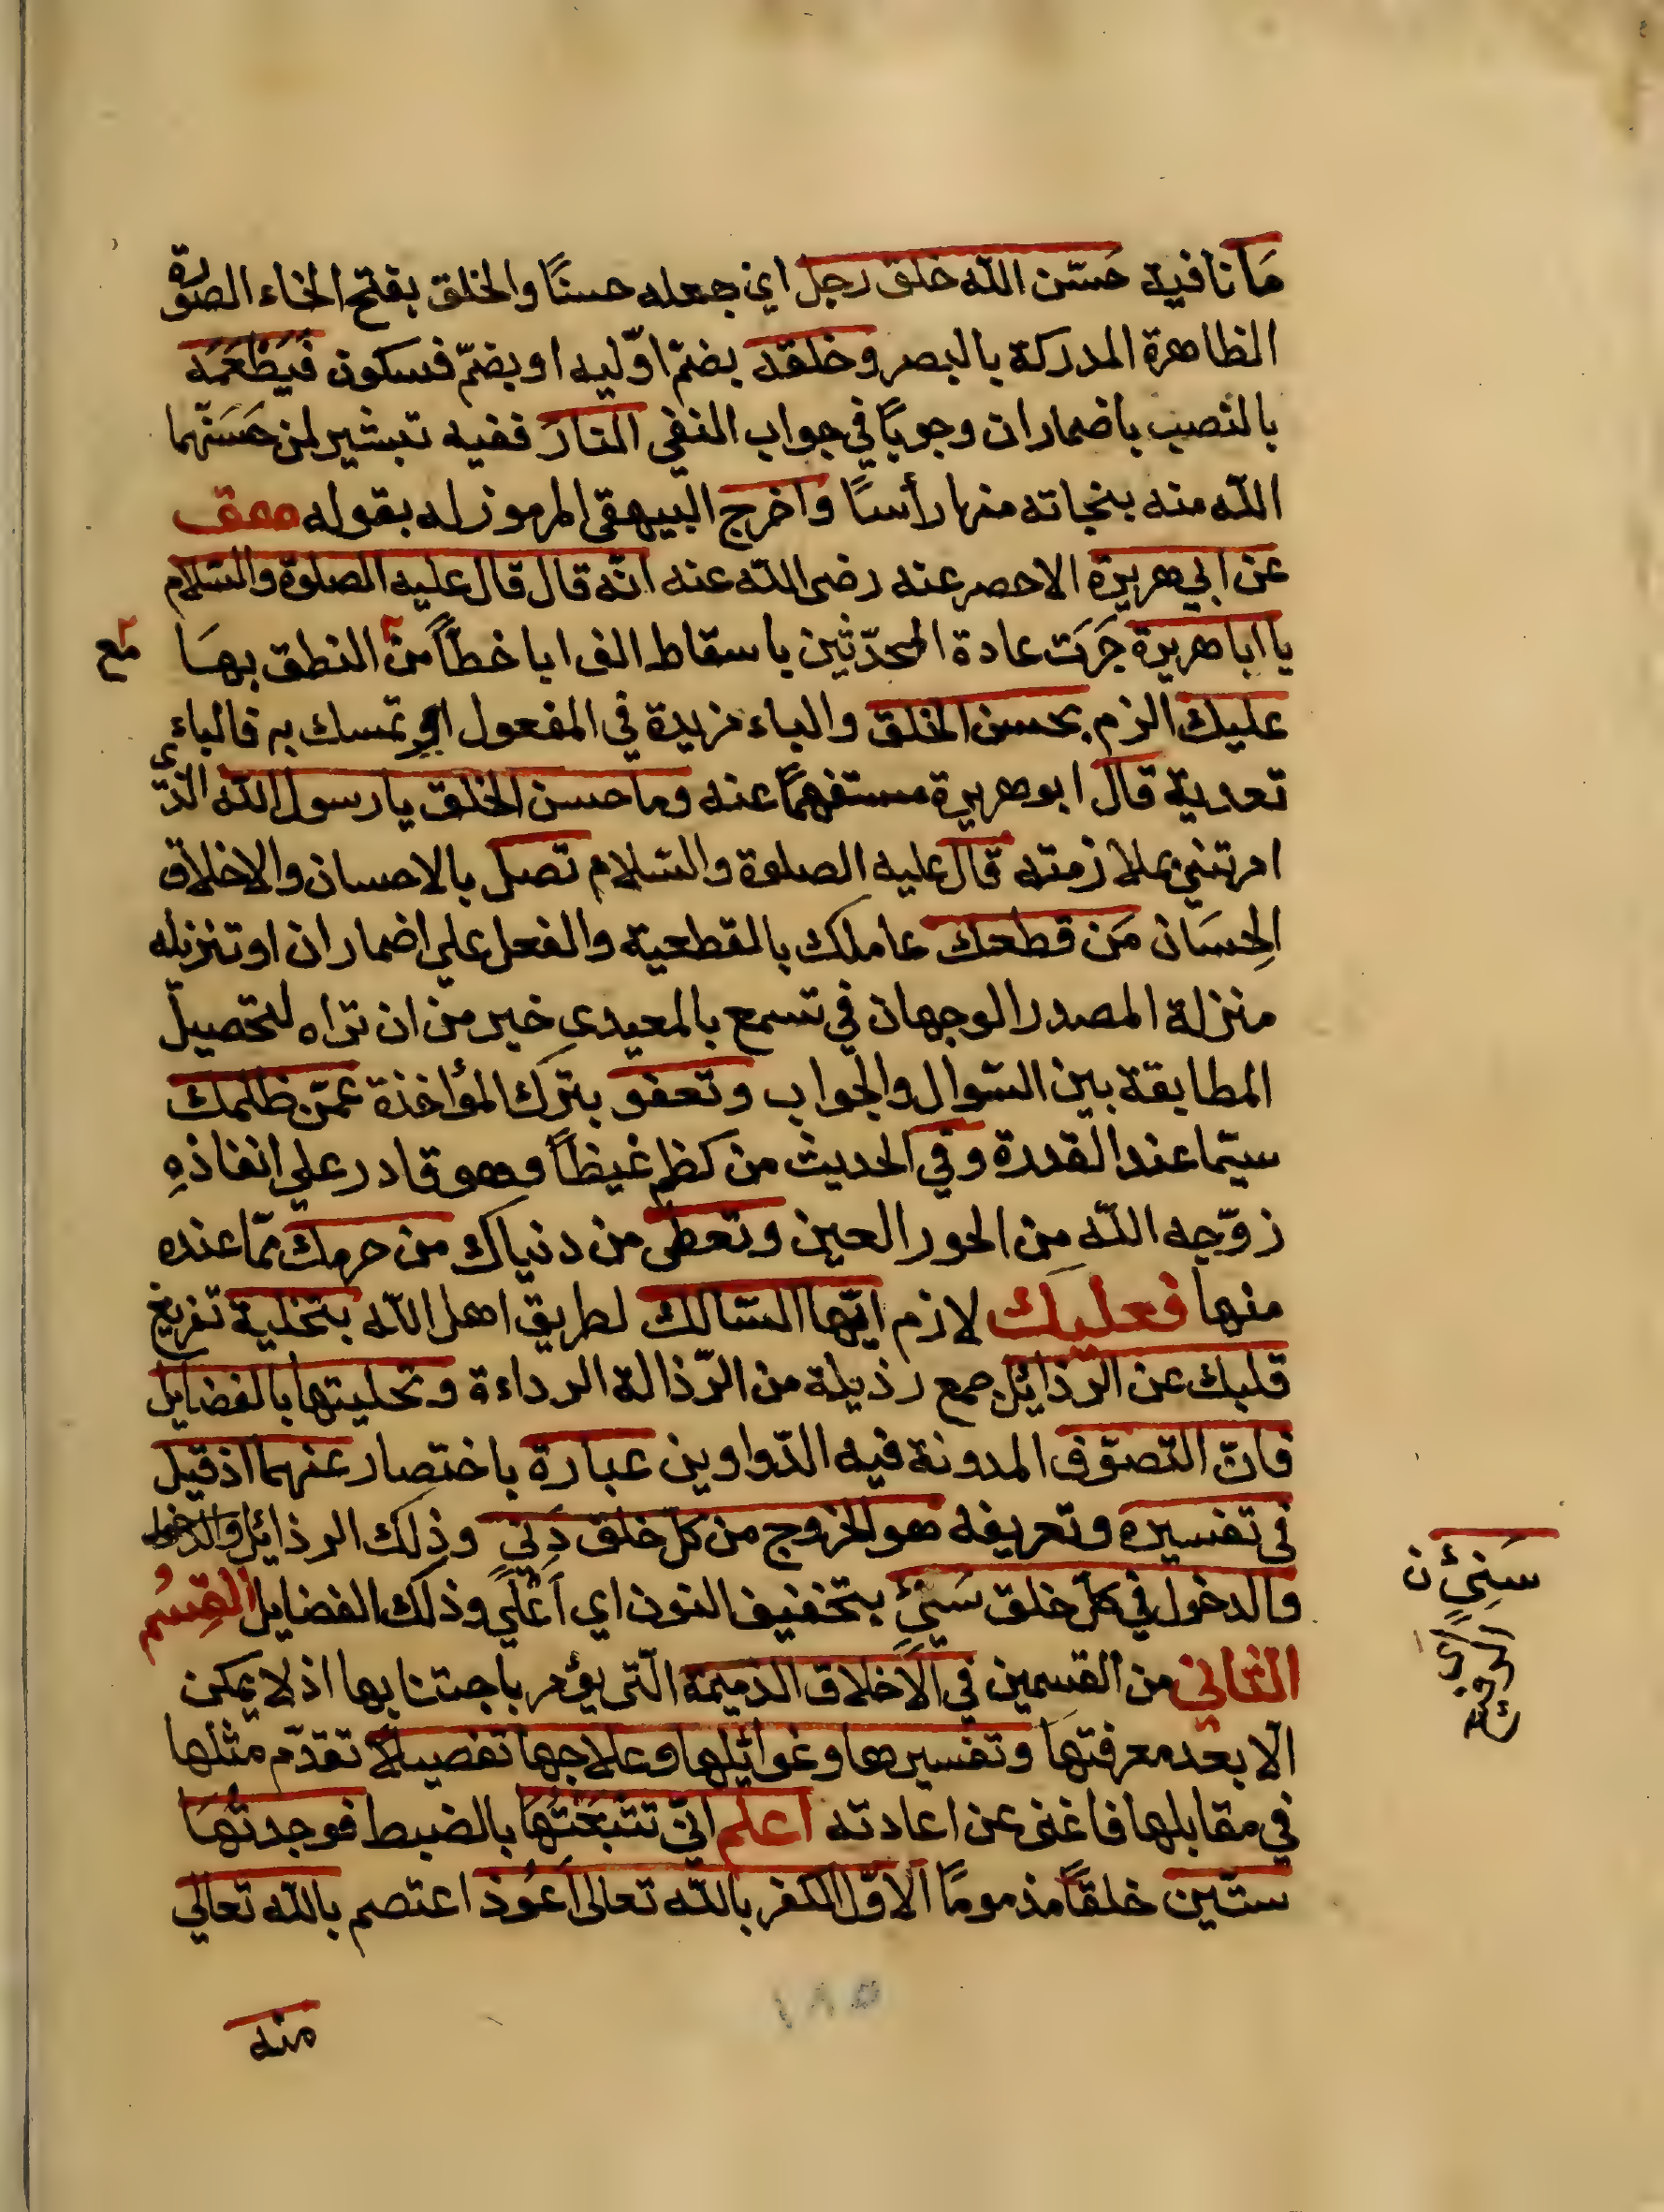 مَا نافية حَسّن الله خلق رجل اي جعله حسنًا والخلق بفتح الخاء الصورة
الظاهرة المدركة بالبصر وخلقه بضم اوّليه او بضمّ فسكون فَيَطْعَمَه
بالنصب باضمار ان وجوبًا في جواب النفي النارَ ففيه تبشير لمن حَسَنّهما
الله منه بنجاته منها رأسًا واخرج البيهقي المرموز له بقوله هق
عن ابي هريرة الاحصر عنه رضى الله عنه انّه قال قال عليه الصلوة والسّلام
يا ابا هريرة جَرَت عادة المحدّثين باسقاط الف ابا خطاً من النطق بهَا
مع
عليك الزم بحسن الخلق والباء مزيدة في المفعول او تمسك به فالباء
تعدية قال ابو هريرة مستفهمًا عنه وما حسن الخلق يا رسول الله الذي
امرتني بملازمته قال عليه الصلوة والسّلام تصل بالاحسان والاخلاق
الحِسَان مَن قطعك عاملك بالقطعية والفعل علي اضمار ان او تنزيله
منزلة المصدر الوجهان في تسمع بالمعيدي خير من ان تراه لتحصيل
المطابقة بين السّوال والجواب وتعفو بترك المؤاخذة عمّن ظلمك
سيّما عند القدرة وفي الحديث من كظم غيظاً وهو قادر علي انفاذهِ
زوّجه الله من الحور العين وتعطى من دنياك من حرمك ممّا عنده
منها فعليك لازم ايّها السّالك لطريق اهل الله بتخلية تفريغ
قلبك عن الرّذائل جمع رذيلة من الرّذالة الرداءة وتحليتها بالفضايل
فانّ التصوّف المدونة فيه الدّواوين عبارة باختصار عنهما اذ قيل
في تفسيره وتعريفه هو الخروج من كلّ خلق دَنيّ وذلك الرذائل والدخول
والدخول في كلّ خلق سَنيّ بتخفيف النون اي اَعْلَي وذلك الفضايل القِسْم
سَنِيْ ن
اي الرفيع
الثاني من القسمين في الاَخلاق الذميمة الّتى يؤمر باجتنابها اذ لا يمكن
الّا بعد معرفتها وتفسيرها وغوائلها وعلاجها تفصيلاً تقدّم مثلها
في مقابلها فاغنى عن اعادته اعلم انّي تتبّعْتُهَا بالضبط فوجدتُهَا
ستّين خلقًا مذمومًا الاوّل الكفر بالله تعالى اَعُوذ اعتصم بالله تعالي
١٨٥
منه